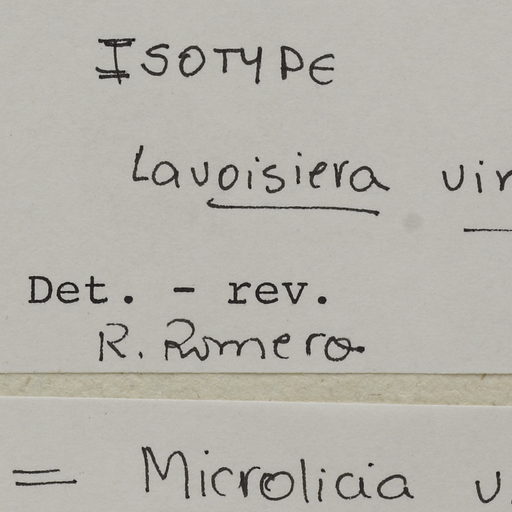 ISOTYPE
Lavoisiera vir
Det. - rev.
R. Romero
= Microlicia v